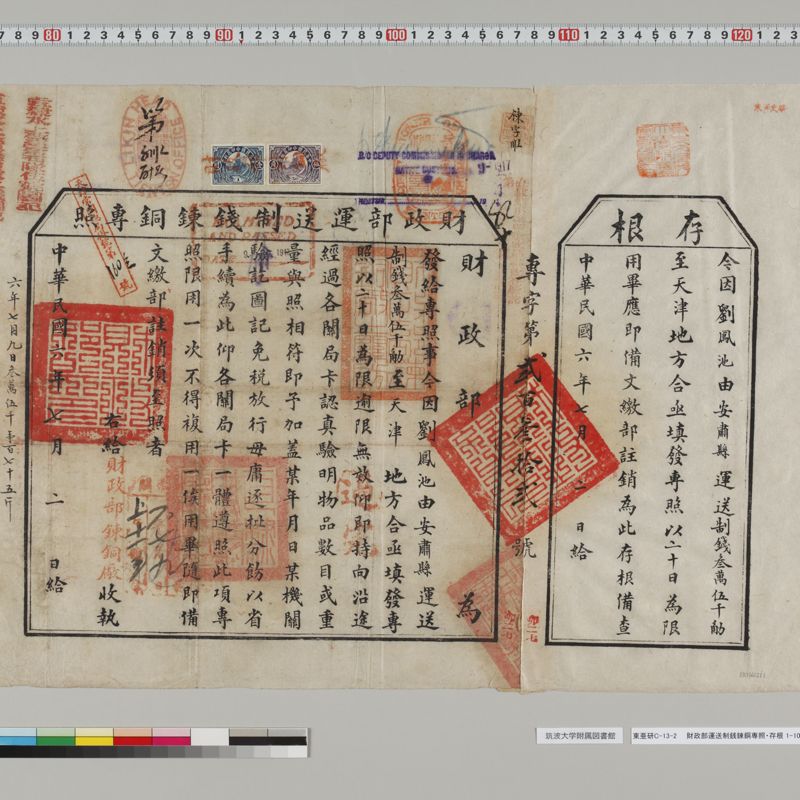 存根
令因劉鳳池由安肅縣運送制錢叁萬伍千觔
至天津地方合亟填發專照以二十日為限
用畢應即備文繳部註銷為此存根備查
中華民國六年七月二日給
專字第貳百叁拾貳號
財政部運送制錢鍊銅專照
財政部為
發給專照事今因劉鳳池由安肅縣運送
制錢叁萬伍千觔至天津地方合亟填發專
照以二十日為限逾限無效仰即持向沿途
經過各關局卡認真驗明物品數目或重
量與照相符即予加蓋某年月日某機關
驗訖圖記免稅放行毋庸逐批分飭以省
手續為此仰各關局卡一體遵照此項專
照限用一次不得複用一俟用畢隨即備
文繳部註銷須至照者
右給財政部鍊銅廠收執
中華民國六年七月二日給
六年七月九日叁萬伍千壹百七十五斤
LIKIN
OFFICE
筑波大学附属図書館
東亜研C-13-2 財政部運送制銭錬銅専照・存根 1-10